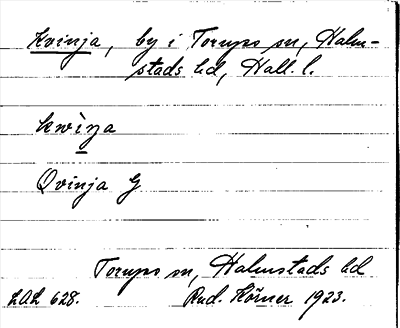 Kvinja, by i Torups sn, Halm-
stads hd, Hall. l.
kwìŋa
Qvinja G
Torups sn, Halmstads hd
LAL 628. Rud. Hörner 1923.